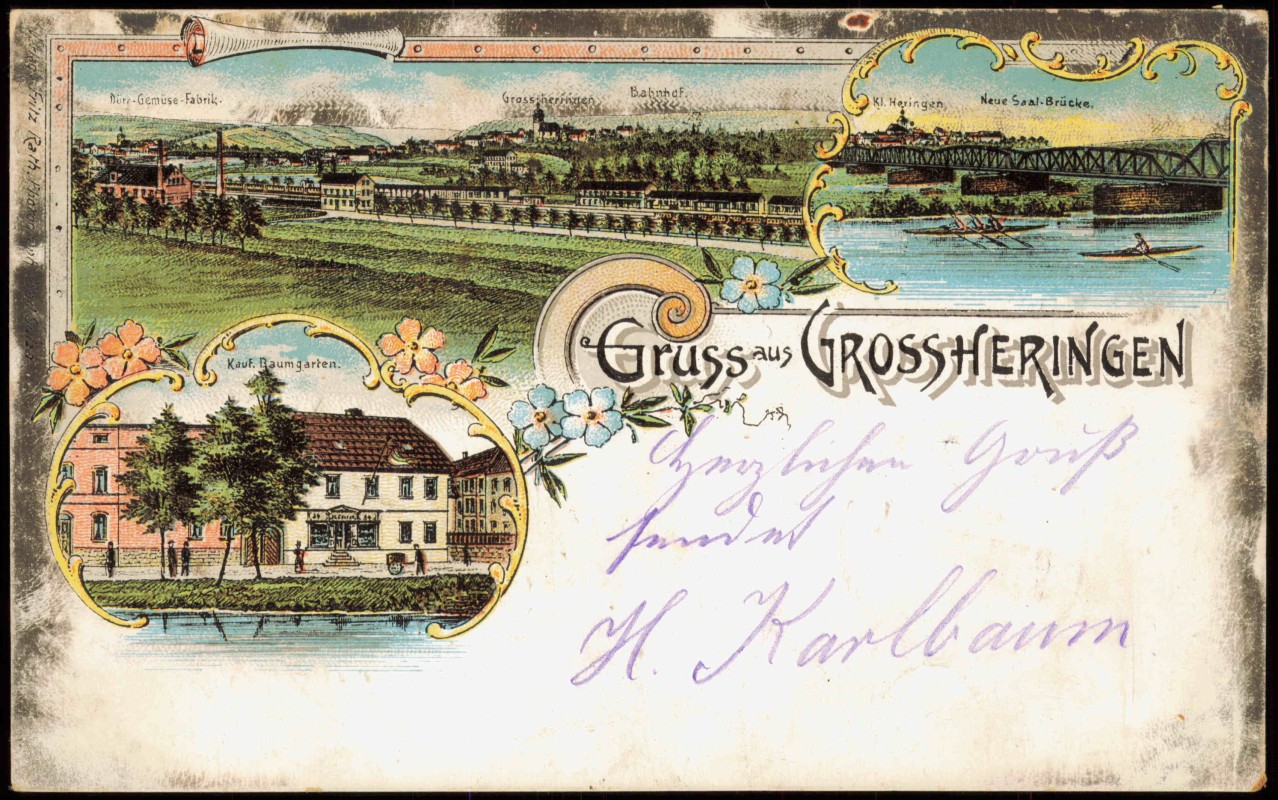 Dürr-Gemüse-Fabrik.
Grossheringen
Bahnhof.
Kl. Heringen
Neue Saal-Brücke.
Kauf. Baumgarten.
Gruss aus GROSSHERINGEN
Herzlichen Gruß
sendet
H. Karlbaum
Fritz